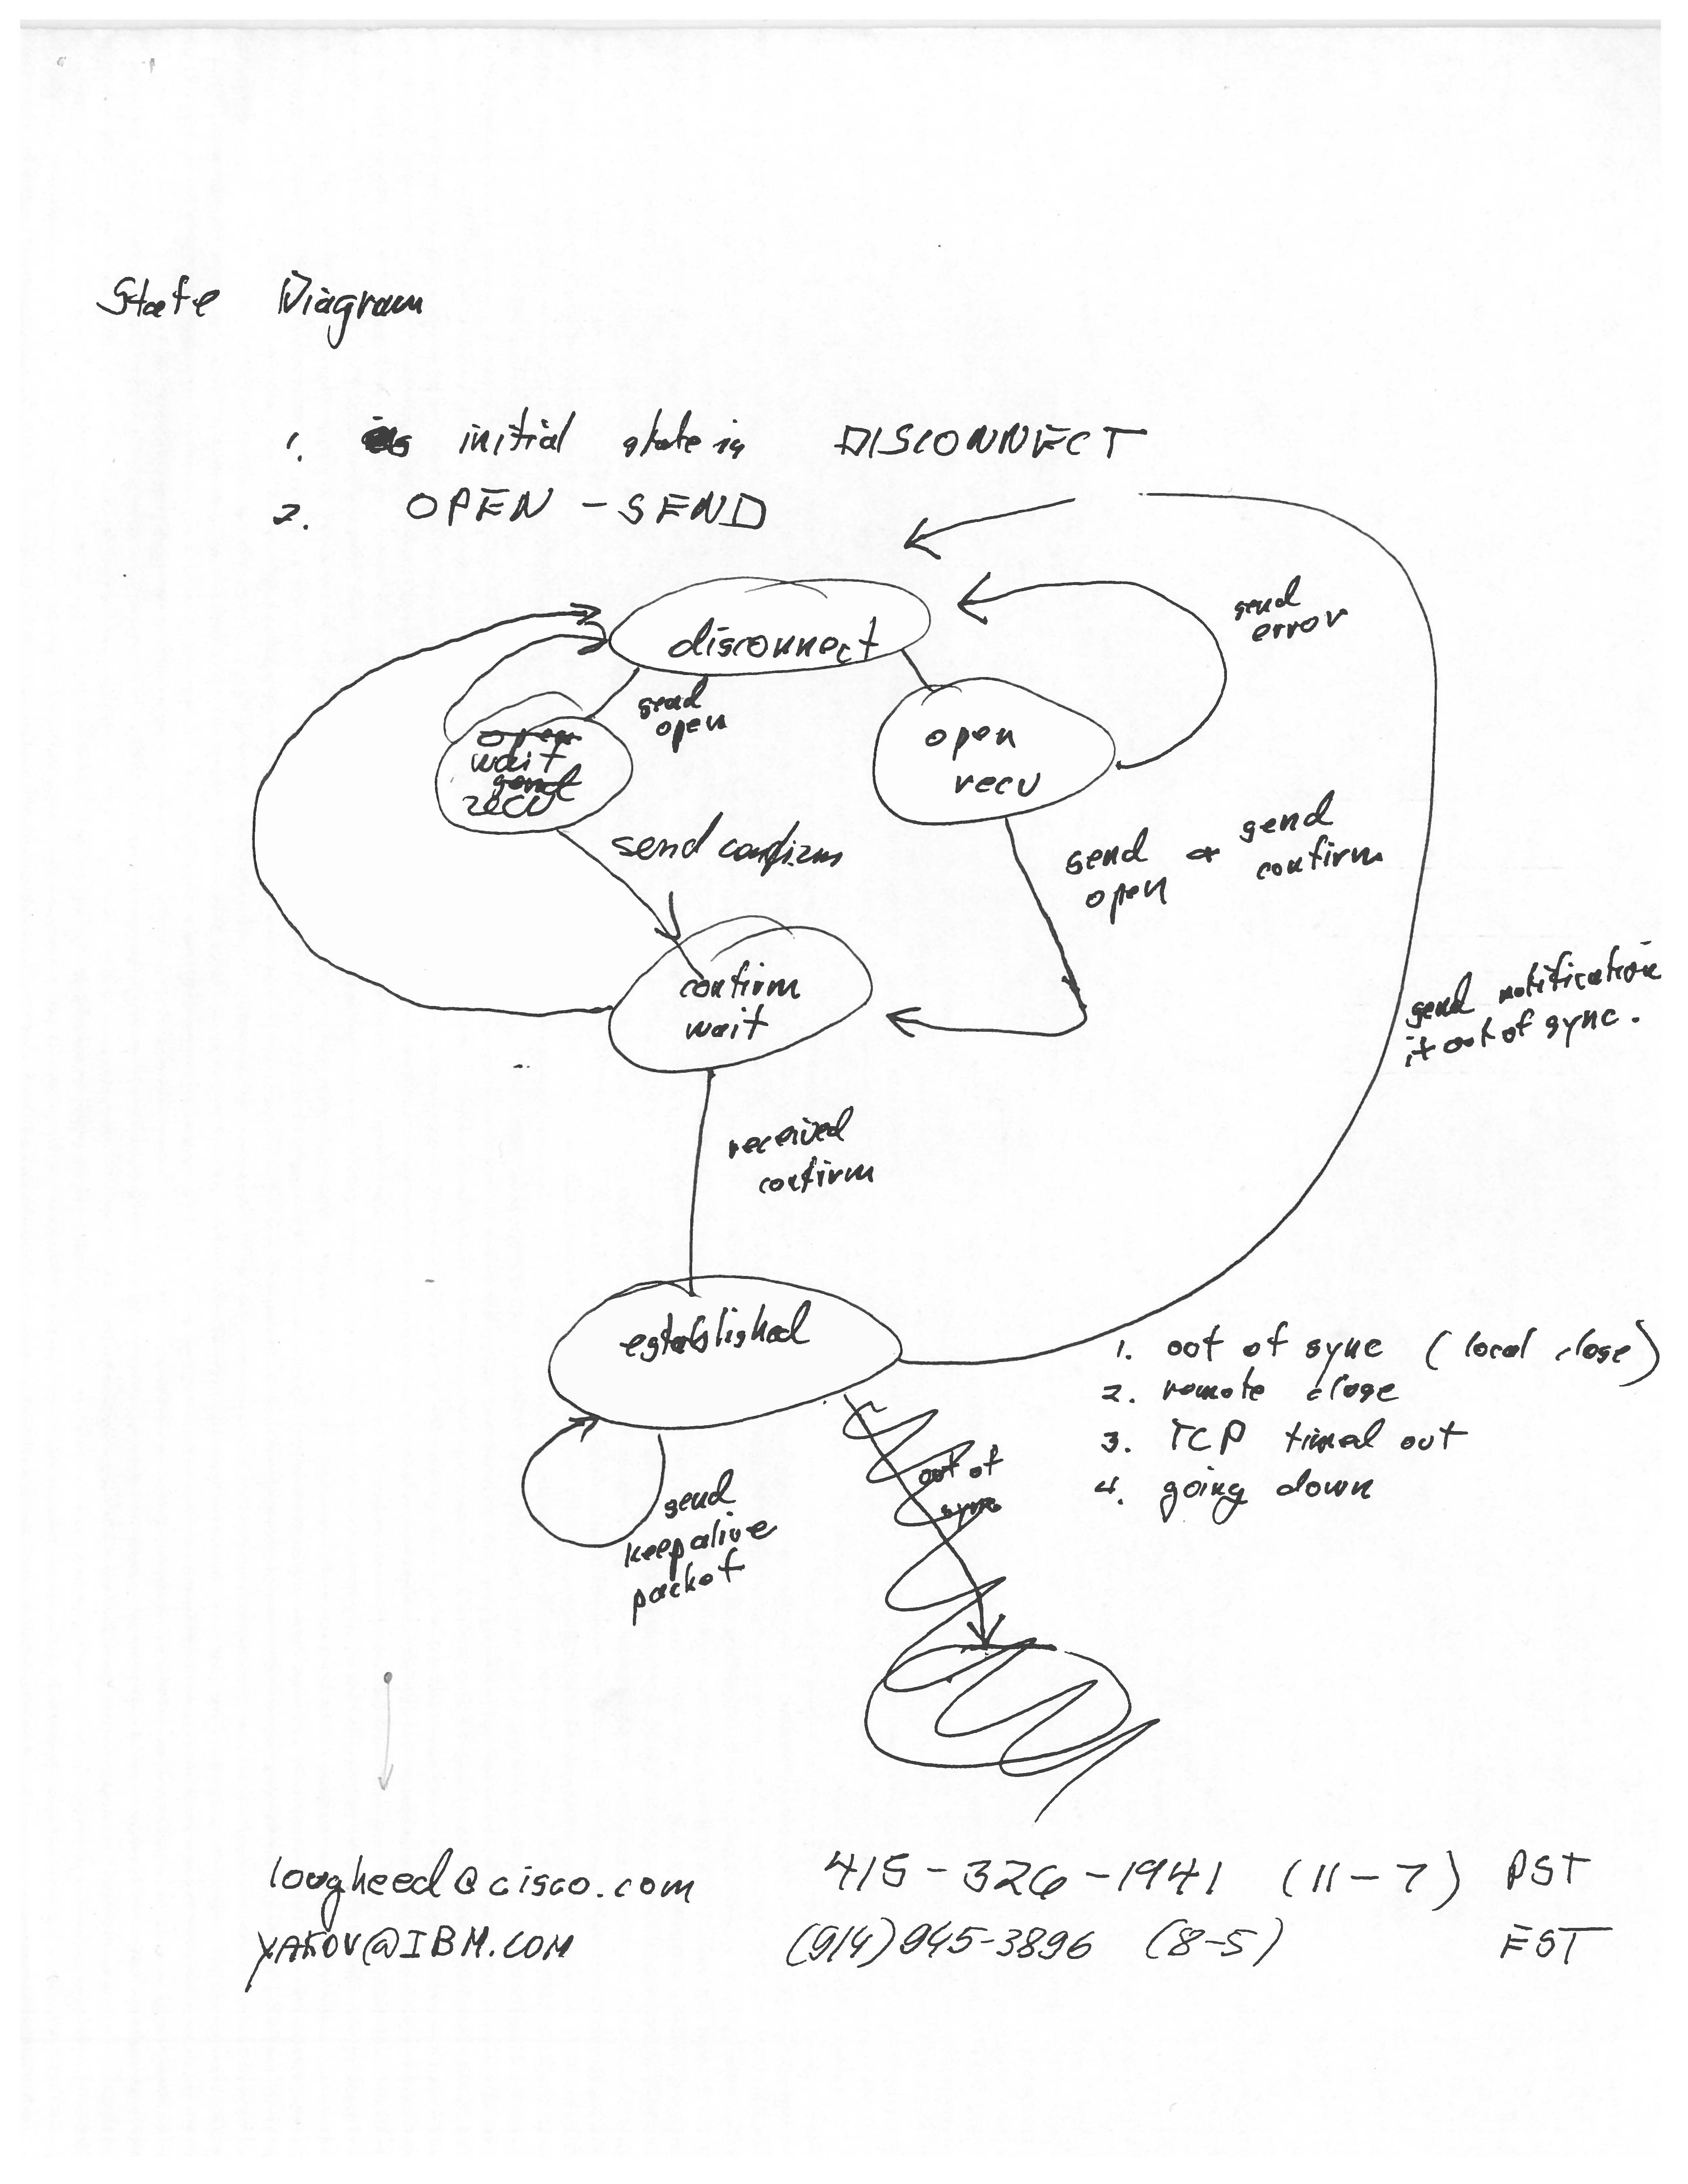 State Diagram
1. initial state is DISCONNECT
2. OPEN - SEND
disconnect
send
error
send
open
open
wait
send
recv
open
recv
send confirm
send & send
open confirm
confirm
wait
send notification
if out of sync.
received
confirm
established
1. out of sync (local close)
2. remote close
3. TCP timed out
4. going down
out of
sync
send
keepalive
packet
lougheed@cisco.com 415-326-1941 (11-7) PST
YAKOV@IBM.COM (914)945-3896 (8-5) EST